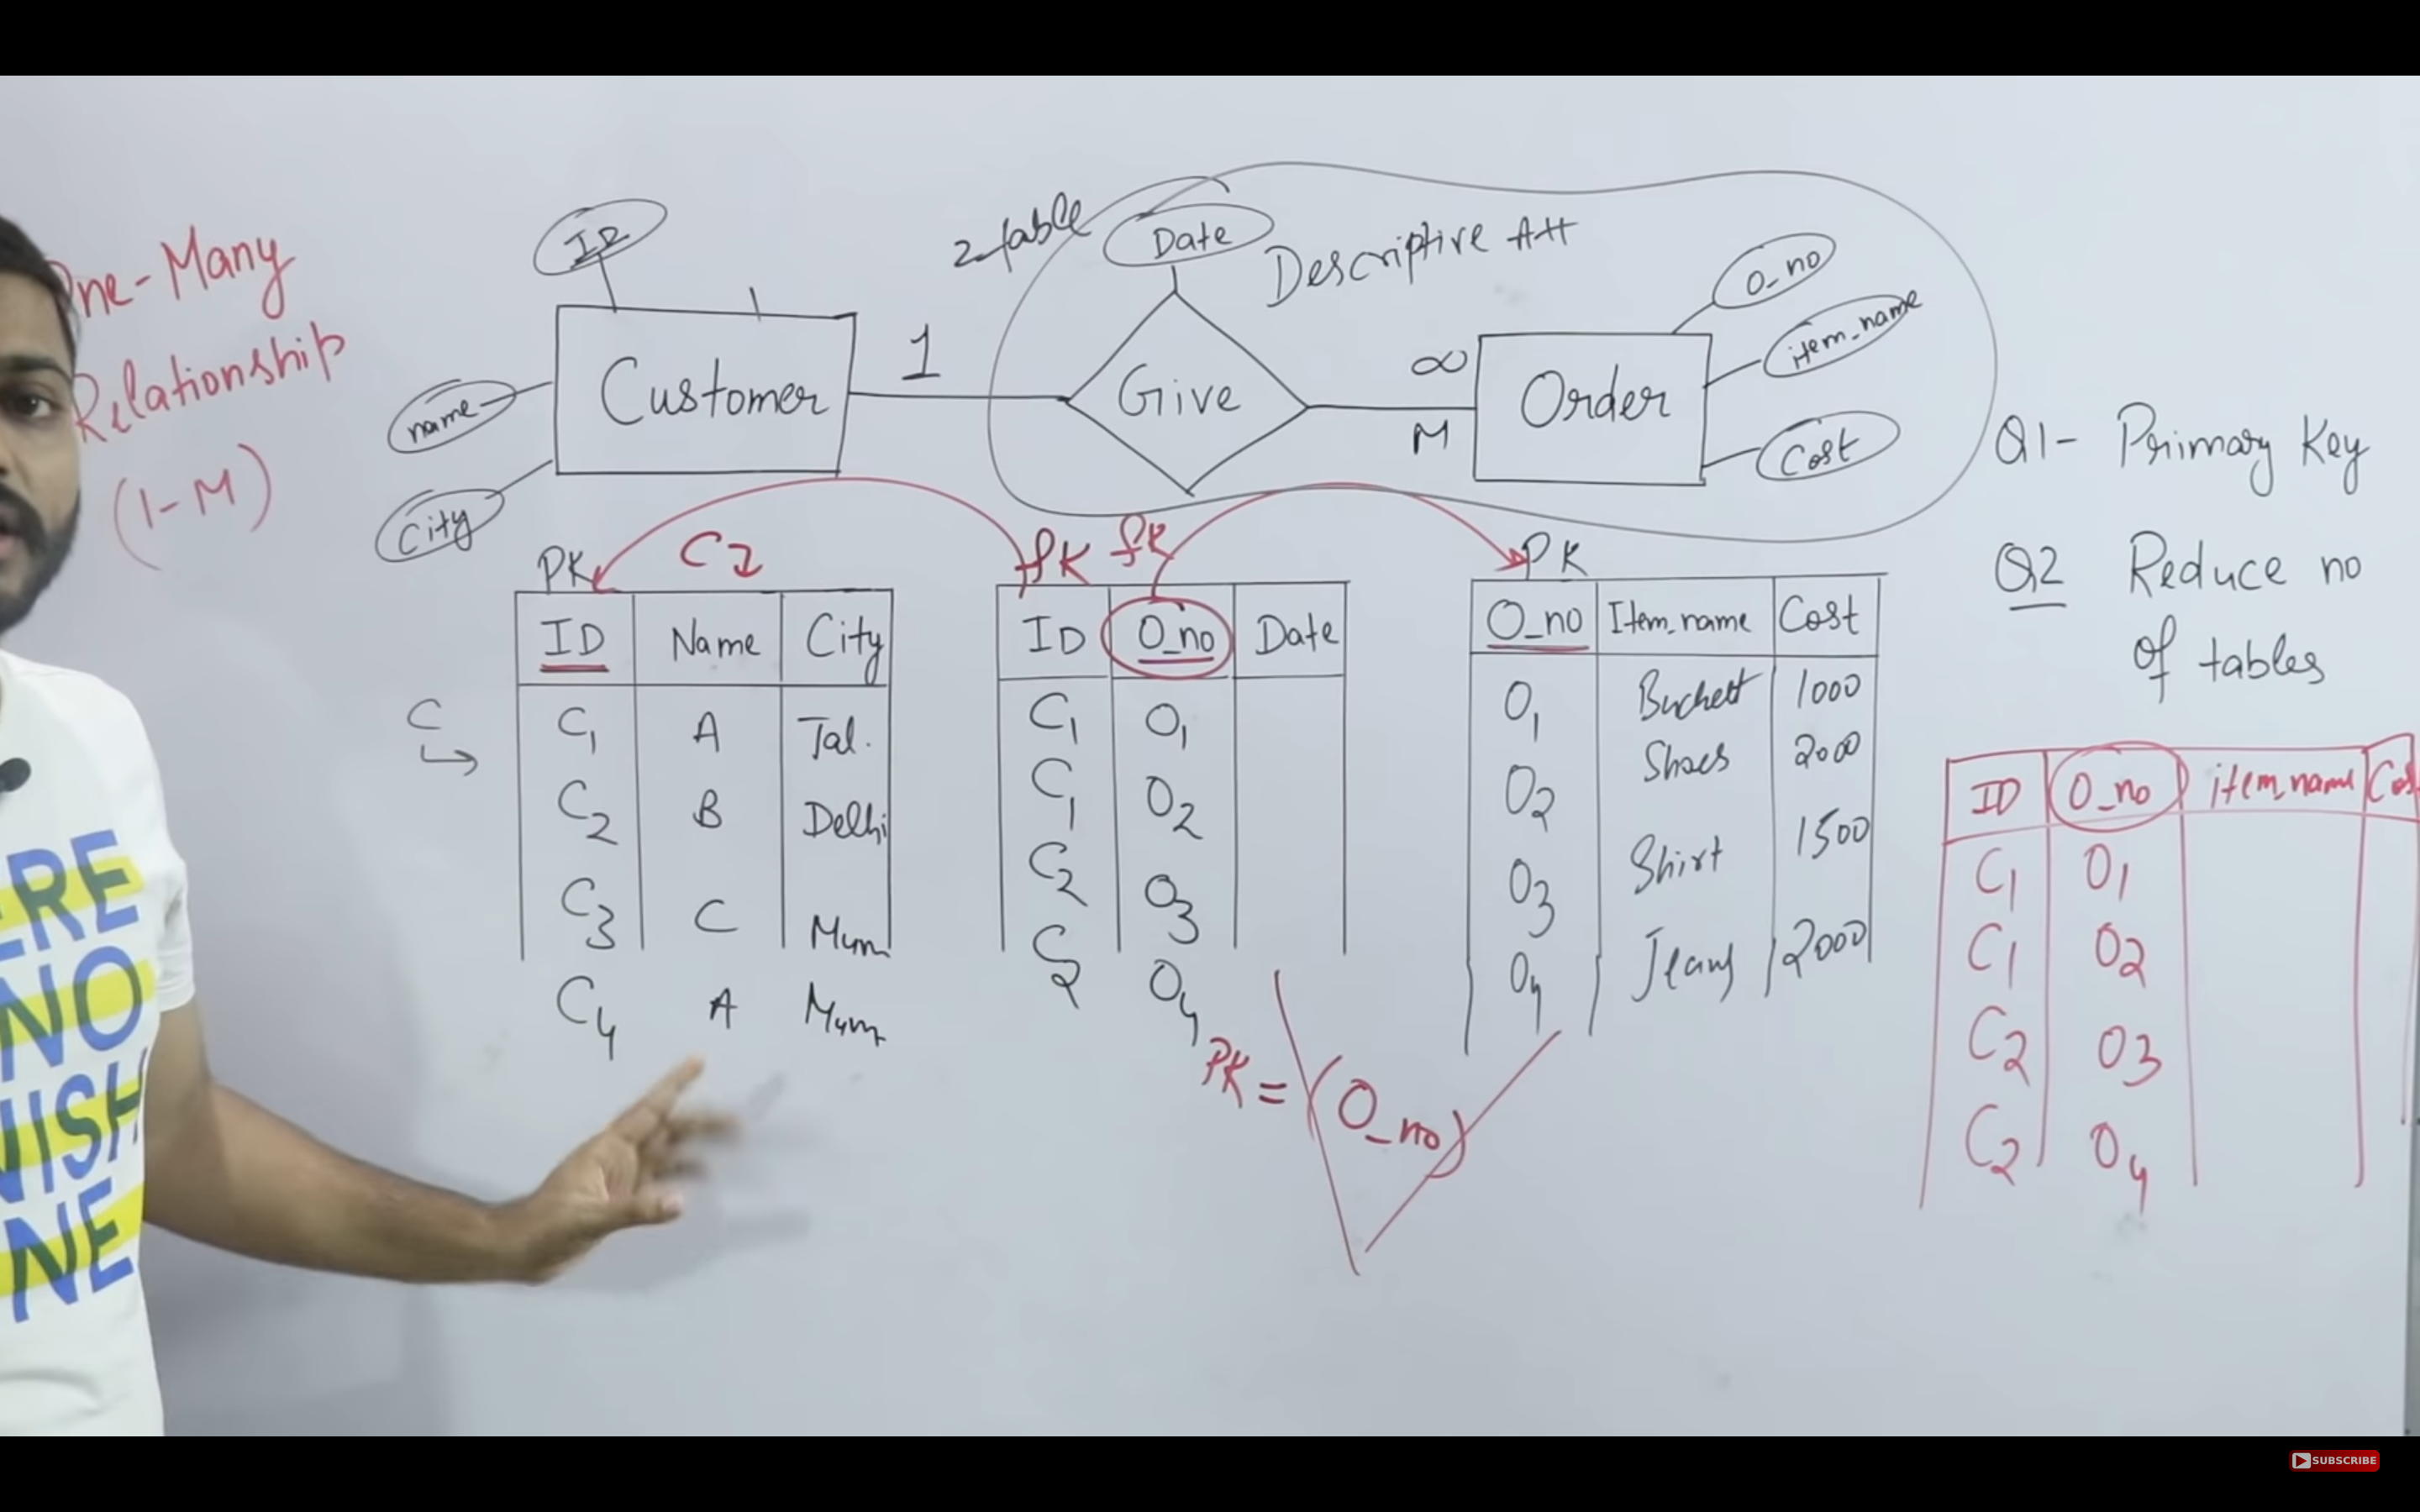 One-Many
Relationship
(1-M)
ID
name
City
Customer
1
2 table
Date
Descriptive Att
Give
∞
M
Order
O_no
item_name
Cost
Q1- Primary Key
Q2 Reduce no
of tables
PK
ID Name City
C1 A Jal.
C2 B Delhi
C3 C Mum
C4 A Mum
C
fK fK
ID O_no Date
C1 O1
C1 O2
C2 O3
C2 O4
PK = (O_no)
PK
O_no Item_name Cost
O1 1000
O2 Shoes 2000
O3 Shirt 1500
O4 Jeans 2000
ID O_no item_name Cos
C1 O1
C1 O2
C2 O3
C2 O4
ERE
NO
NISH
NE
SUBSCRIBE